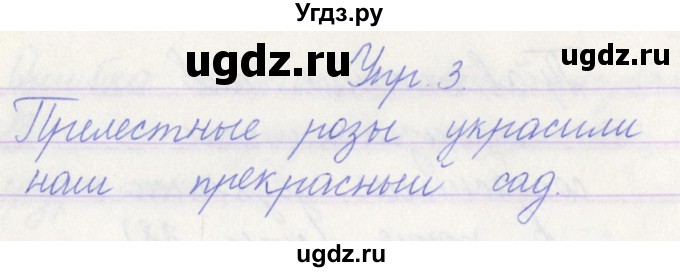 Угдз.ру
ugdz.ru ugdz.ru
Упр. 3.
Прелестные розы украсили
наш прекрасный сад.
ugdz.ru